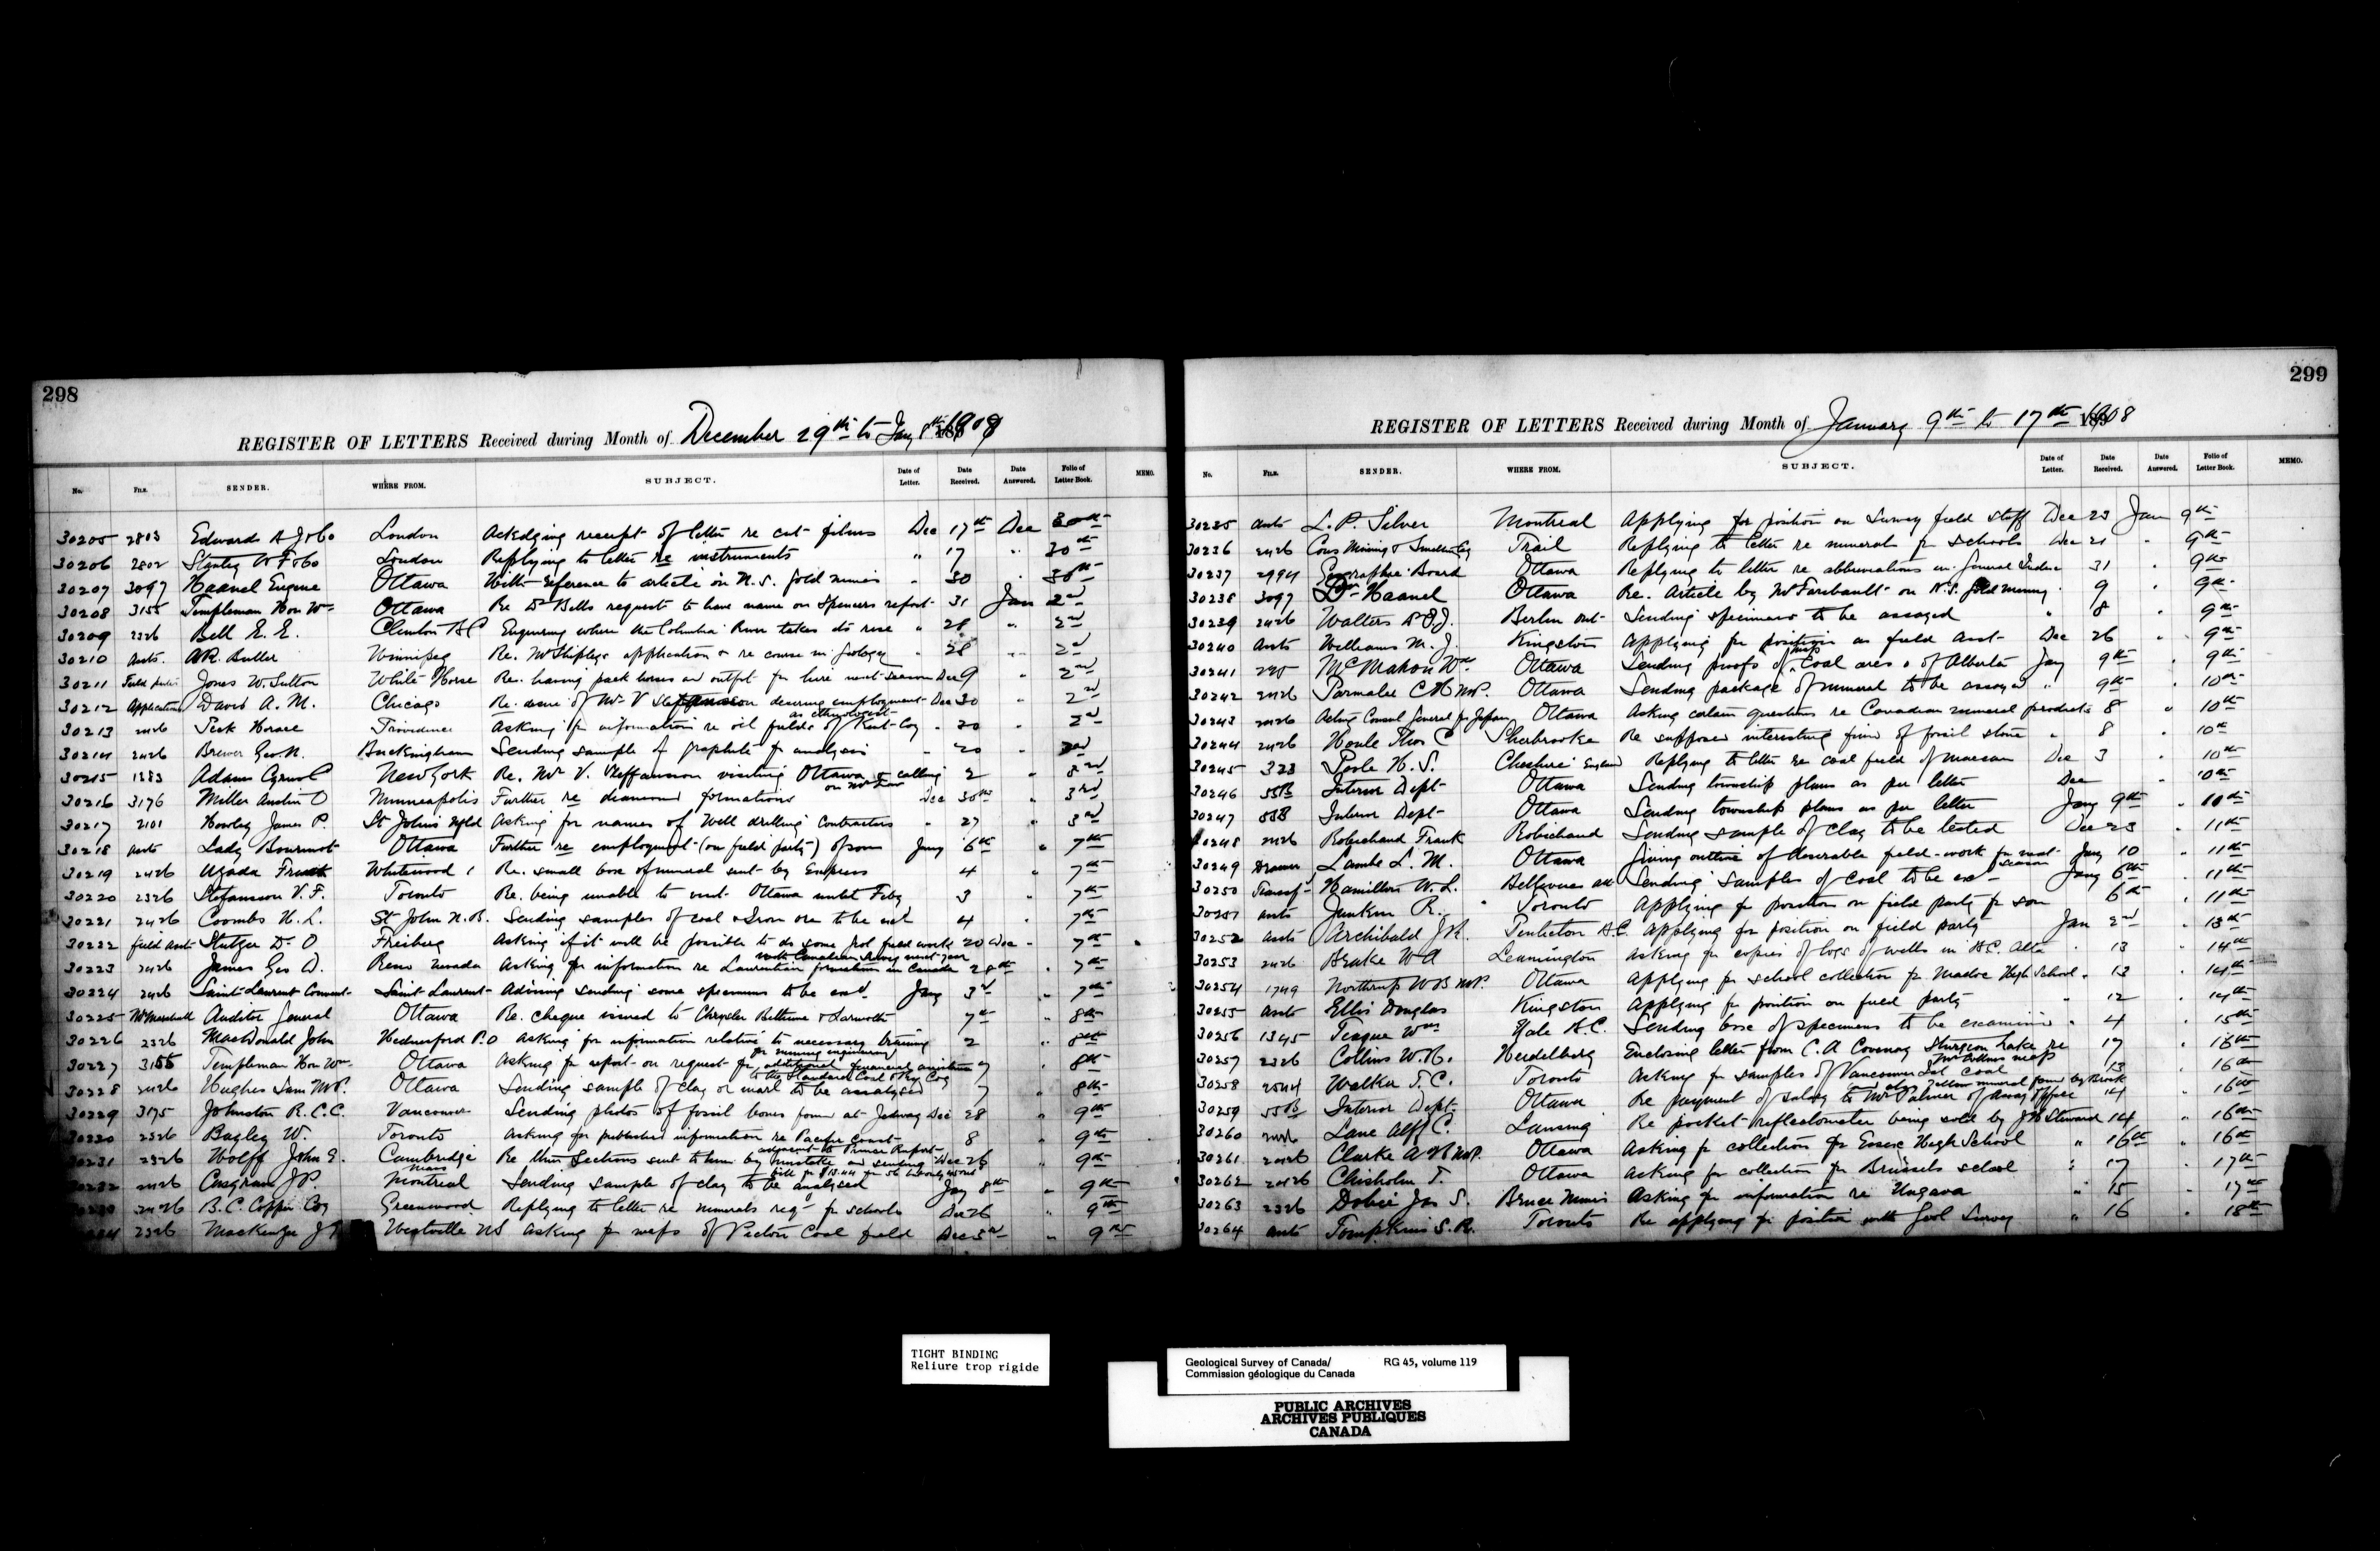 298
REGISTER OF LETTERS Received during Month of December 29th to Jany 8th 1908
No. FILE. SENDER. WHERE FROM. SUBJECT. Date of Letter. Date Received. Date Answered. Folio of Letter Book. MEMO.
30205 2803 Edwards A J & Co London Ackedging receipt of letter re cut films Dec 17th Dec 30th
30206 2802 Stanley W F & Co London Replying to letter re instruments " 17 " 30th
30207 3097 Haanel Eugene Ottawa With reference to article on N.S. gold mines " 30 " 30th
30208 3155 Templeman Hon Wm Ottawa Re Dr Bells request to have name on Spencers report 31 Jan 2nd
30209 2326 Bell E. E. Clinton B C Enquiring where the Columbia River takes its rise " 28 " 2nd
30210 Assts. A.R. Butler Winnipeg Re. Mr Shipleys application & re course in geology " 28 " 2nd
30211 Field Jones W. Sutton White Horse Re. having pack horses and outfit for hire next season Dec 9 " 2nd
30212 Application David A. M. Chicago Re. desire of Mr V Stefansson desiring employment Dec 30 " 2nd
as ethnologist
30213 2426 Peck Horace Providence Asking for information re oil fields of Kent Coy " 30 " 2nd
30214 2426 Brewer Geo. N. Buckingham Sending sample of graphite for analysis " 20 " 2nd
30215 1283 Adams Cyrus C New York Re. Mr V. Steffansson visiting Ottawa & calling 2 " 3rd
on Mr Low
30216 3176 Miller Austin O Minneapolis Further re diamond formations Dec 30th " 3rd
30217 2101 Howley James P. St John's Nfld Asking for names of "Well drilling" Contractors " 27 " 3rd
30218 Assts Lady Bourinot Ottawa Further re employment (on field party) of son Jany 6th " 7th
30219 2426 Whitewood Re. small box of mineral sent by Express 4 " 7th
30220 2326 Stefansson V. F. Toronto Re. being unable to visit Ottawa until Feby 3 " 7th
30221 2426 Coombs H. L. St John N.B. Sending samples of coal & Iron ore to be exd 4 " 7th
30222 field asst Stutzer Dr O Freiberg Asking if it will be possible to do some field work 20 Dec " 7th
with Canadian Survey next year
30223 2426 James Geo D. Reno Nevada Asking for information re Laurentian formation in Canada 28th " 7th
30224 2426 Saint Laurent Convent Saint Laurent Advising sending some specimens to be exd Jany 3rd " 7th
30225 Mr Marshall Auditor General Ottawa Re. cheque issued to Chrysler Bethune & Larmonth 7th " 8th
30226 2326 MacDonald John Hednesford P.O Asking for information relative to necessary training 2 " 8th
for mining engineering
30227 3155 Templeman Hon Wm Ottawa Asking for report on request for additional financial assistance 7 " 8th
to the Standard Coal & Ry Coy
30228 2426 Hughes Sam M.P. Ottawa Sending sample of clay or marl to be analysed 7 " 8th
30229 3175 Johnston R. C. C. Vancouver Sending photos of fossil bones found at Jedway Dec 28 " 9th
30230 2326 Bagley W. Toronto Asking for published information re Pacific Coast 8 " 9th
adjacent to Prince Rupert
30231 2326 Wolff John E. Cambridge Re thin Sections sent to him by and sending Dec 28 " 9th
Mass bill for
30232 2426 Casgrain J P. Montreal Sending sample of clay to be analysed Jany 8th " 9th
2426 B. C. Copper Coy Greenwood Replying to letter re minerals reqd for schools Dec 26 " 9th
2326 MacKenzie J Westville NS Asking for maps of Pictou Coal field Dec " 9th
299
REGISTER OF LETTERS Received during Month of January 9th to 17th 1908
No. FILE. SENDER. WHERE FROM. SUBJECT. Date of Letter. Date Received. Date Answered. Folio of Letter Book. MEMO.
30235 Assts L. P. Silver Montreal Applying for position on Survey field staff Dec 23 Jan 9th
30236 2426 Cons Mining & Smelter Coy Trail Replying to letter re minerals for schools Dec 21 " 9th
30237 2994 Geographic Board Ottawa Replying to letter re abbreviations in General Index 31 " 9th
30238 3097 Dr Haanel Ottawa Re. Article by Mr Faribault on N.S. Gold mining 9 " 9th
30239 2426 Walters Berlin Ont Sending specimens to be assayed " 8 " 9th
30240 Assts Williams M. J. Kingston Applying for position as field asst Dec 26 " 9th
30241 McMahon Wm Ottawa Sending proofs of map Coal areas of Alberta Jany 9th " 9th
30242 2426 Parmalee C H M.P. Ottawa Sending package of mineral to be assayed " 9th " 10th
30243 2426 Acting Consul General for Japan Ottawa Asking certain questions re Canadian mineral products 8 " 10th
30244 2426 Houle Thos C Sherbrooke Re supposed interesting find of fossil stone " 8 " 10th
30245 323 Poole H. S. Cheshire England Replying to letter re coal field of Dec 3 " 10th
30246 55B Interior Dept Ottawa Sending township plans as per letter Dec " 10th
30247 55B Interior Dept Ottawa Sending township plans as per letter Jany 9th " 10th
30248 2426 Robichaud Frank Robichaud Sending sample of clay to be tested Dec 23 " 11th
30249 Lambe L. M. Ottawa Giving outline of desirable field-work for next Jany 10 " 11th
season
30250 Hamilton W. L. Bellevue Alta Sending samples of coal to be exd Jany 6th " 11th
30251 Assts Junkin R. Toronto Applying for position on field party for son 6th " 11th
30252 Assts Archibald J.H. Penticton B.C. Applying for position on field party Jan 2nd " 13th
30253 2426 Brake W A Leamington Asking for copies of logs of wells in B.C. Alta " 13 " 14th
30254 1749 Northrup W B M.P. Ottawa Applying for school collection for Madoc High School " 13 " 14th
30255 Assts Ellis Douglas Kingston Applying for position on field party " 12 " 14th
30256 1345 Teague Wm Yale B.C. Sending box of specimens to be examined " 4 " 15th
30257 2326 Collins W. H. Heidelberg Enclosing letter from C. A Sturgeon Lake re 17 " 16th
maps
30258 2544 Walker T. C. Toronto Asking for samples of Vancouver Isl coal 13 " 16th
and also yellow mineral found by Brock
30259 55B Interior Dept. Ottawa Re payment of salary to Mr Palmer of Assay Office 14 " 16th
30260 Lane Alf C. Lansing Re pocket reflectometer being sold by Steward 14 " 16th
30261 2426 Clarke A H M.P. Ottawa Asking for collection for Essex High School " 16th " 16th
30262 2426 Chisholm T. Ottawa Asking for collection for Brussels school " 17 " 17th
30263 2326 Dobie Jas S. Bruce Mines Asking for information re Ungava " 15 " 17th
30264 Assts Tompkins S. R. Toronto Re applying for position with Geol Survey " 16 " 18th
TIGHT BINDING
Reliure trop rigide
Geological Survey of Canada/ RG 45, volume 119
Commission géologique du Canada
PUBLIC ARCHIVES
ARCHIVES PUBLIQUES
CANADA